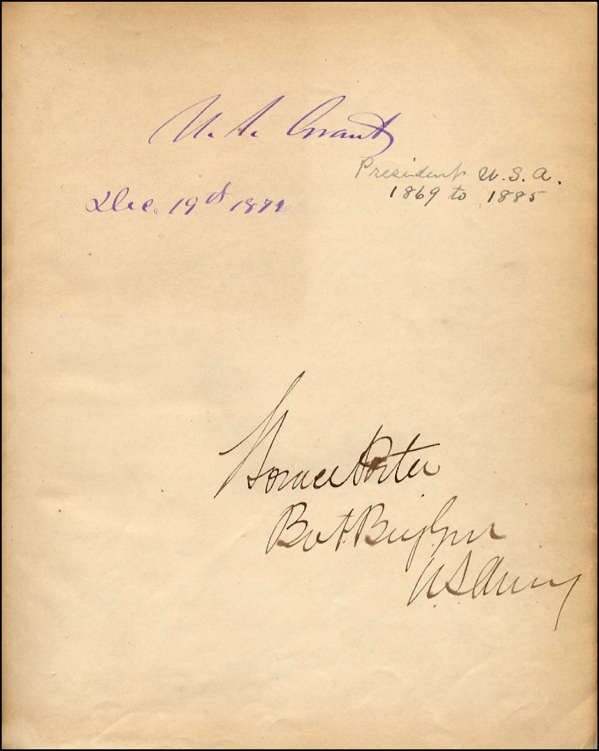 U. S. Grant
President U.S.A.
1869 to 1885
Dec. 19th
Horace Porter
Bvt. Brig Genl
U.S. Army